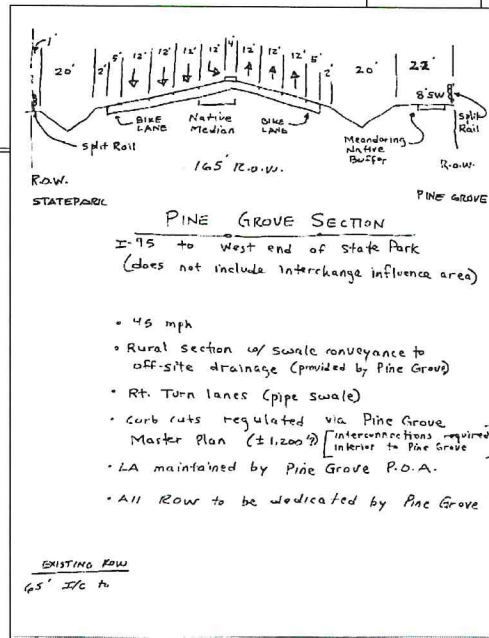 1'
20' 2' 5' 12' 12' 12' 12' 4' 12' 12' 12' 5' 2' 20' 22'
8' SW
BIKE LANE
Native Median
BIKE LANE
Meandering Native Buffer
Split Rail
Split Rail
165' R.O.W.
R.O.W.
R.O.W.
STATE PARK
PINE GROVE
PINE GROVE SECTION
I-95 to West end of State Park
(does not include Interchange influence area)
• 45 mph
• Rural section w/ swale conveyance to
off-site drainage (provided by Pine Grove)
• Rt. Turn lanes (pipe swale)
• Curb cuts regulated via Pine Grove
Master Plan (± 1,200'?) [interconnections required
interior to Pine Grove
• LA maintained by Pine Grove P.O.A.
• All ROW to be dedicated by Pine Grove
EXISTING ROW
65' I/C to